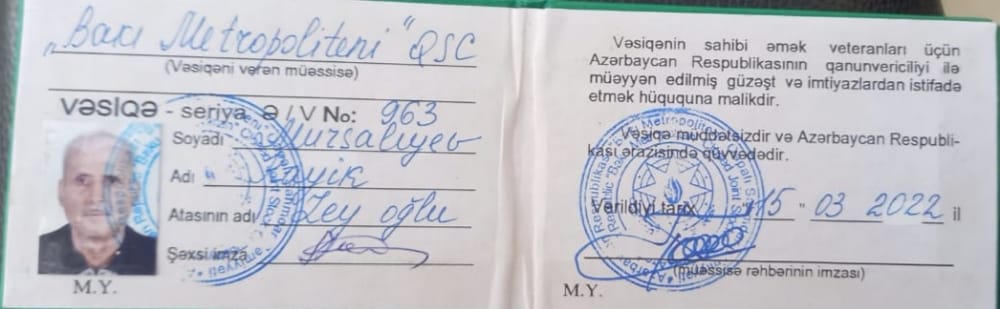 "Bakı Metropoliteni" QSC
(Vəsiqəni verən müəssisə)
VƏSİQƏ - seriya Ə / V No: 963
Soyadı Mürsəliyev
Adı
Atasının adı Zey oğlu
Şəxsi imza
M.Y.
Vəsiqənin sahibi əmək veteranları üçün
Azərbaycan Respublikasının qanunvericiliyi ilə
müəyyən edilmiş güzəşt və imtiyazlardan istifadə
etmək hüququna malikdir.
Vəsiqə müddətsizdir və Azərbaycan Respubli-
kası ərazisində qüvvədədir.
Verildiyi tarix "15" 03 2022 il
(müəssisə rəhbərinin imzası)
M.Y.